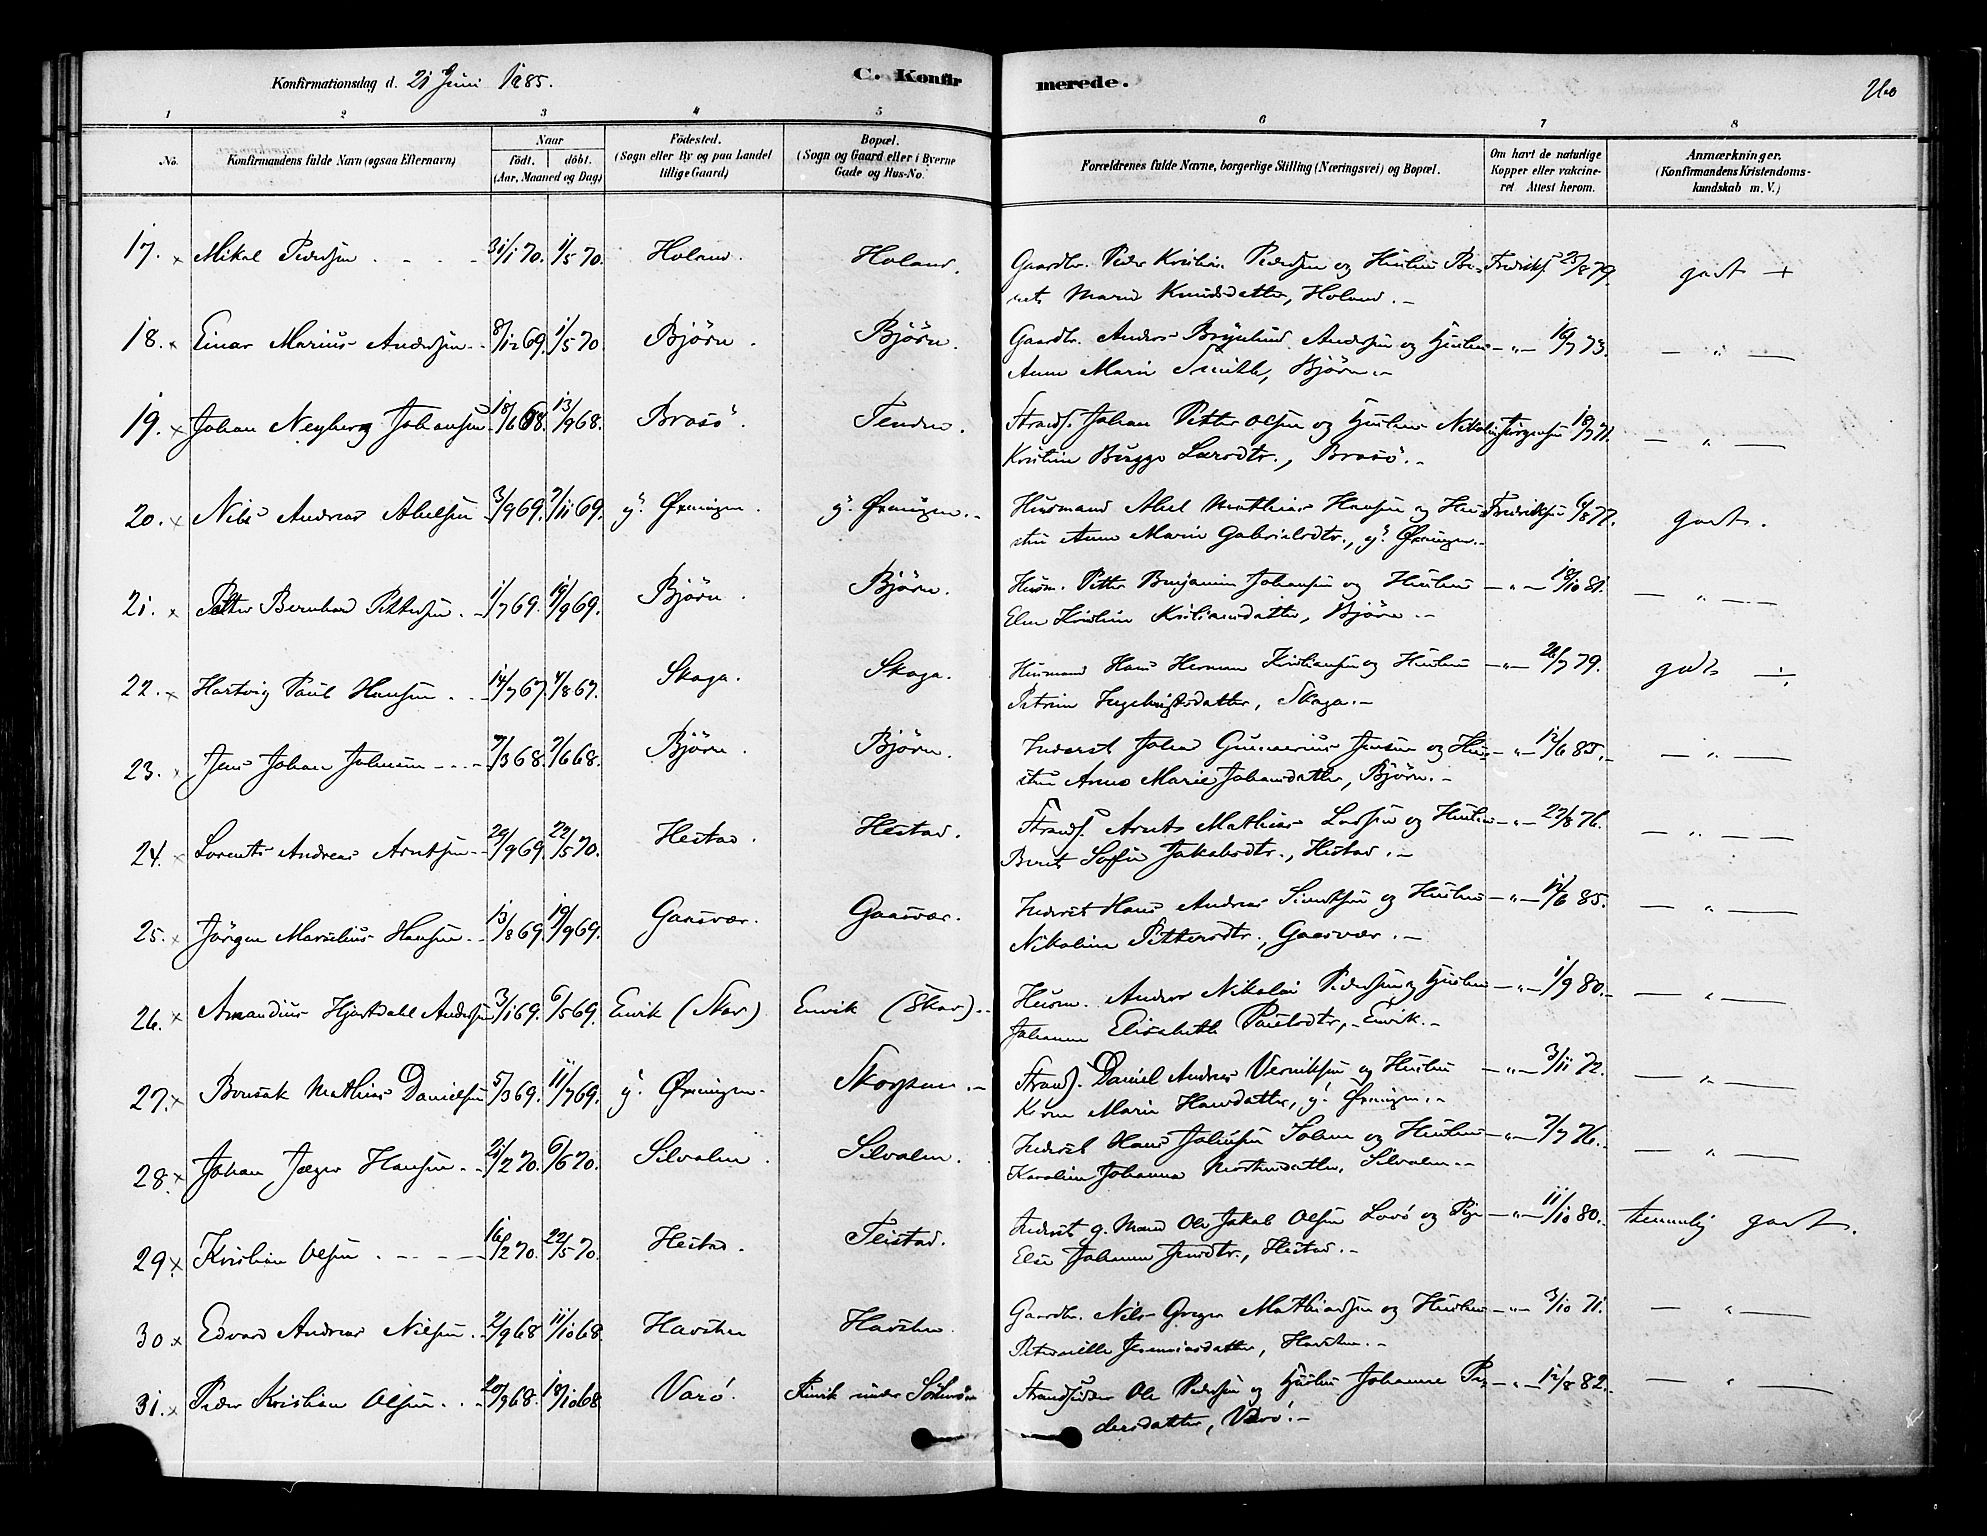 Konfirmationsdag d. 21 Juni 1885.
C. Konfirmerede.
260
1 2 3 4 5 6 7 8
No.
Konfirmandens fulde Navn (ogsaa Efternavn)
Naar
födt. döbt.
(Aar, Maaned og Dag)
Födested.
(Sogn eller By og paa Landet
tillige Gaard)
Bopæl.
(Sogn og Gaard eller i Byerne
Gade og Hus-No.
Forældrenes fulde Navne, borgerlige Stilling (Næringsvei) og Bopæl.
Om havt de naturlige
Kopper eller vakcine-
ret Attest herom.
Anmærkninger.
(Konfirmandens Kristendoms-
kundskab m. V.)
17. × Mikal Pedersen 31/1 70. 1/5 70. Holand. Holand. Gaardbr. Peder Kristian Pedersen og Hustru Be- Fredriks. 25/8 79. godt +
ret Marie Knudsdatter, Holand.
18. × Einar Marius Andersen 8/12 69. 1/5 70. Björn. Björn. Gaardbr. Anders Brynlund Andersen og Hustru — " — 16/7 73. — " —
Anne Marie Smith, Björn.
19. × Johan Neyberg Johansen 18/6 68. 13/9 68. Brasö. Tenden. Strands. Johan Petter Olsen og Hustru Nikoline Jörgensen 18/7 71. — " —
Kristine Bugge Larsdtr., Brasö.
20. × Nils Andreas Abelsen 3/9 69. 7/11 69. y. Öxningen. y. Öxningen. Husmand Abel Mathias Hansen og Hus- Fredriksen 6/8 77. godt.
tru Anne Marie Gabrielsdtr., y. Öxningen.
21. × Petter Bernhard Pettersen 1/7 69. 19/9 69. Björn. Björn. Husm. Petter Benjamin Johansen og Hustru — " — 18/10 81. — " —
Elen Kristine Kristiansdatter, Björn.
22. × Hartvig Paul Hansen 14/7 67. 4/8 67. Skaga. Skaga. Husmand Hans Herman Kristiansen og Hustru — " — 26/7 79. godt ÷
Petrine Ingebrigtsdatter, Skaga.
23. × Jens Johan Johnsen 7/3 68. 7/6 68. Björn. Björn. Inderst Johan Gunnerius Jensen og Hus- — " — 12/6 85. — " —
tru Anne Marie Johansdatter, Björn.
24. × Lorents Andreas Arntsen 29/9 69. 22/5 70. Hestad. Hestad. Strands. Arnt Mathias Larsen og Hustru — " — 27/8 76. — " —
Berit Sofie Jakobsdtr., Hestad.
25. × Jörgen Marselius Hansen 13/8 69. 19/9 69. Gaasvær. Gaasvær. Inderst Hans Andreas Simonsen og Hustru — " — 14/6 85. — " —
Nikoline Pettersdtr., Gaasvær.
26. × Amandius Hjortdahl Andersen 3/1 69. 6/5 69. Envik (Skar) Envik (Skar). Husm. Anders Nikolai Pedersen og Hustru — " — 1/9 80. — " —
Johanna Elisabeth Paulsdtr., Envik.
27. × Bensak Mathias Danielsen 5/3 69. 11/7 69. y. Öxningen. Skorpen. Strands. Daniel Andreas Verniksen og Hustru — " — 3/11 72. — " —
Karen Marie Hansdatter, y. Öxningen.
28. × Johan Jæger Hansen 21/2 70. 6/6 70. Silvalen. Silvalen. Inderst Hans Johnsen Solem og Hustru — " — 7/7 76. — " —
Karoline Johanna Mortensdatter, Silvalen.
29. × Kristian Olsen 16/2 70. 22/5 70. Hestad. Teistad. Inderst g. Mand Ole Jakob Olsen Lovö og Pige — " — 11/10 80. temmelig godt.
Else Johanna Jensdtr., Hestad.
30. × Edvard Andreas Nielsen 2/9 68 11/10 68. Havsten Havsten. Gaardbr. Nils Greger Mathiassen og Hustru — " — 3/10 71. — " —
Petornille Jeremiasdatter, Havsten.
31. × Peder Kristian Olsen 20/9 68. 18/10 68 Varö. Finvik under Strandsidder Ole Pedersen og Hustru Johanne Pe- — " — 12/8 82. — " —
dersdatter, Varö.